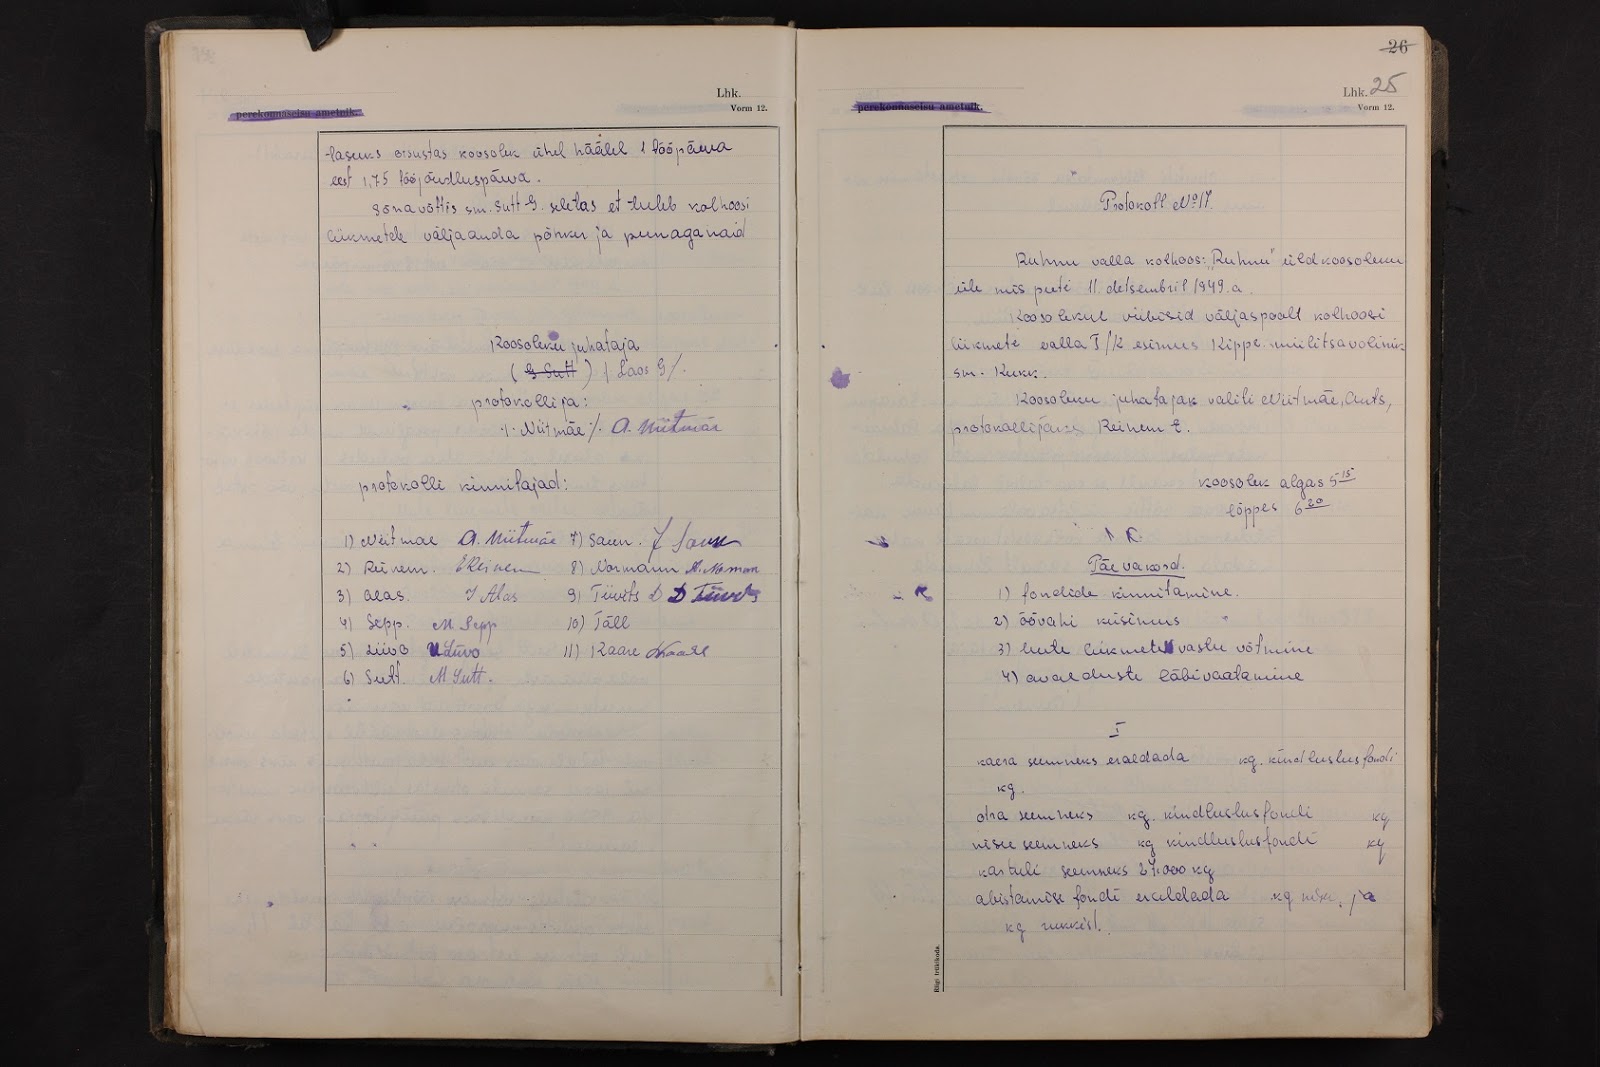 Lhk.
Vorm 12.
perekonnaseisu ametnik.
-laseks otsustas koosolek ühel häälel 1 tööpäeva
eest 1,75 tööjõudluspäeva.
Sõnavõttis sm. Sutt G. seletas et tuleb kolhoosi
liikmetele väljaanda põhku ja peenaganaid
Koosoleku juhataja
(G Sutt) / Laos G/.
protokollija:
·/· Niitmäe ·/. A. Niitmäe
protokolli kinnitajad:
1) Niitmäe A. Niitmäe 7) Saun.
2) Reinem. E Reinem 8) Normann
3) Alas. J Alas 9) Tüvits D D Tüvits
4) Sepp. M. Sepp 10) Täll
5) Liivo Liivo 11) Kaare Kaare
6) Sutt. M Sutt.
26
Lhk. 25
Vorm 12.
perekonnaseisu ametnik.
Protokoll No 17.
Ruhnu valla kolhoos: „Ruhnu" üldkoosoleku
üle mis peeti 11 detsembril 1949.a.
Koosolekul viibisid väljaspoolt kolhoosi
liikmete valla T/K esimees Kippe. miilitsavolinik
sm. Kukk.
Koosoleku juhatajaks valiti Niitmäe, Ants,
protokollijaks Reinem E.
Koosolek algas 5 15
lõppes 6 20
Päevakord.
1) fondide kinnitamine.
2) öövahi küsimus
3) uute liikmete vastu võtmine
4) avalduste läbivaatamine
I
kaera seemneks eraldada kg. kindlustusfondi
kg.
otra seemneks kg. kindlustusfondi kg
nisu seemneks kg kindlustusfondi kg
kartuli seemneks 27.000 kg
abistamise fondi eraldada kg nisu, ja
kg rukkist.
Riigi trükikoda.